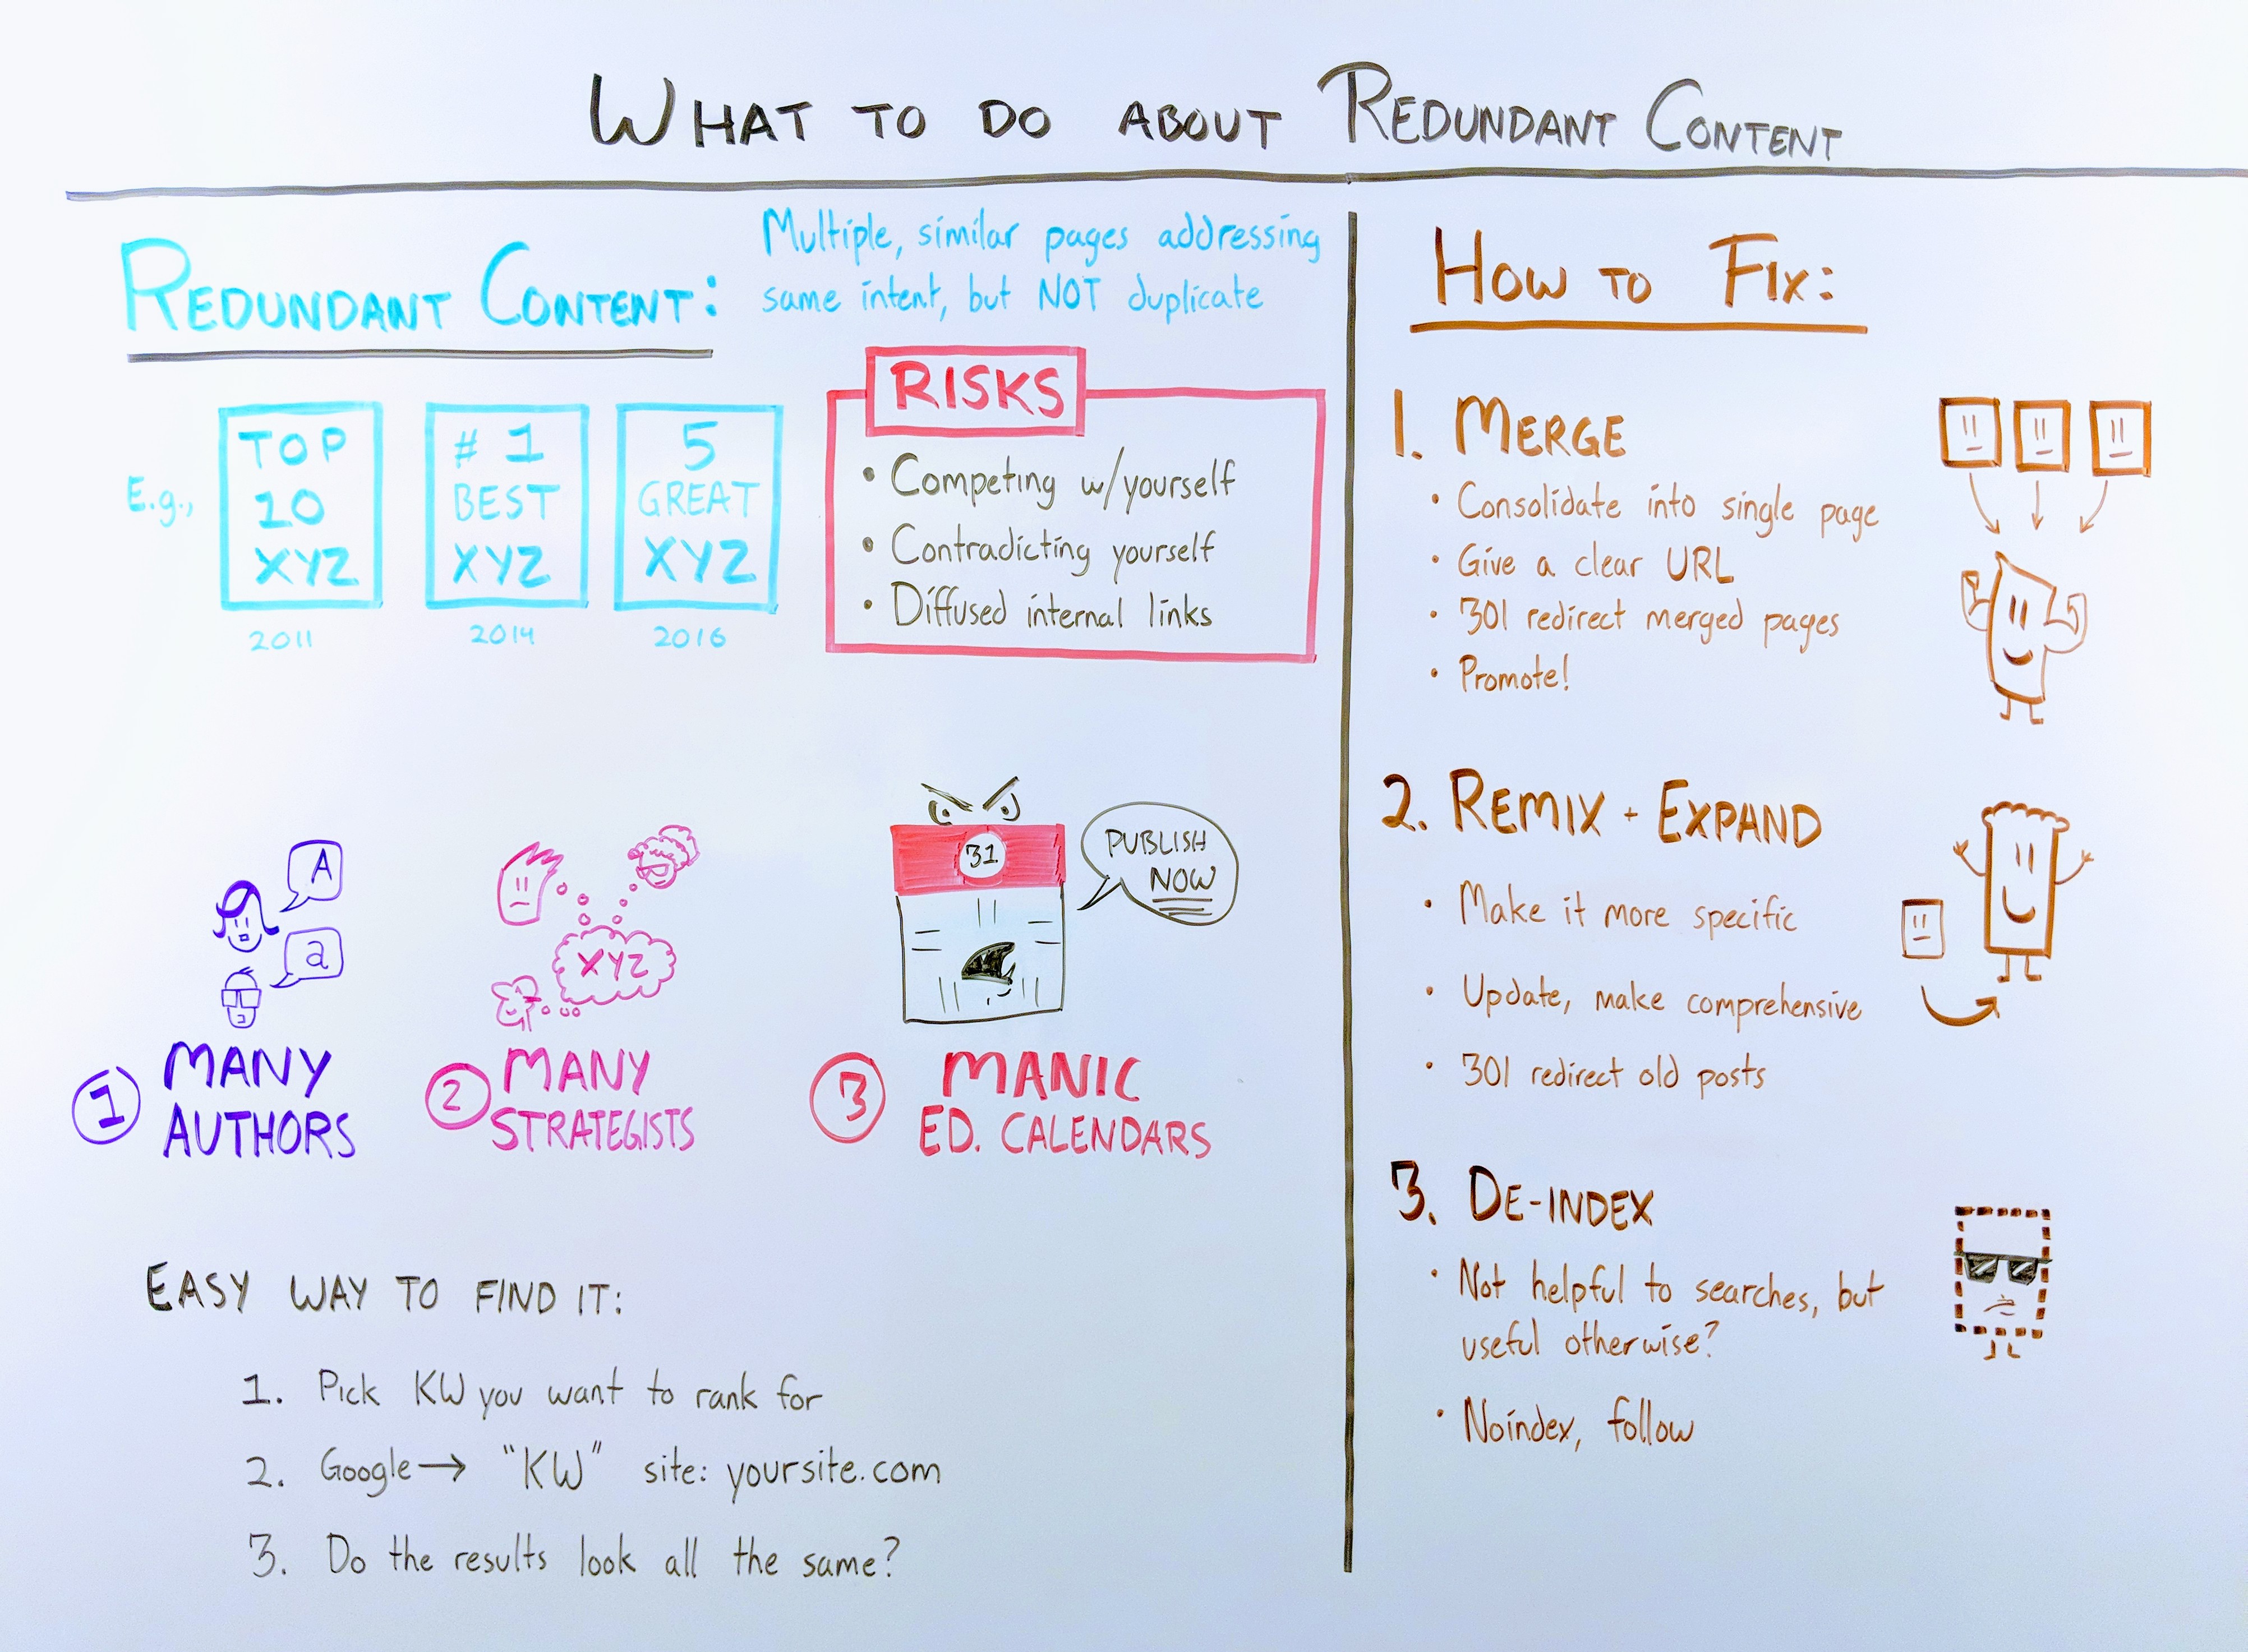 WHAT TO DO ABOUT REDUNDANT CONTENT
REDUNDANT CONTENT:
Multiple, similar pages addressing
same intent, but NOT duplicate
E.g.,
TOP
10
XYZ
2011
# 1
BEST
XYZ
2014
5
GREAT
XYZ
2016
RISKS
• Competing w/yourself
• Contradicting yourself
• Diffused internal links
A
a
1 MANY
AUTHORS
XYZ
2 MANY
STRATEGISTS
31
PUBLISH
NOW
3 MANIC
ED. CALENDARS
EASY WAY TO FIND IT:
1. Pick KW you want to rank for
2. Google → "KW" site: yoursite.com
3. Do the results look all the same?
HOW TO FIX:
1. MERGE
• Consolidate into single page
• Give a clear URL
• 301 redirect merged pages
• Promote!
2. REMIX + EXPAND
• Make it more specific
• Update, make comprehensive
• 301 redirect old posts
3. DE-INDEX
• Not helpful to searches, but
useful otherwise?
• Noindex, follow